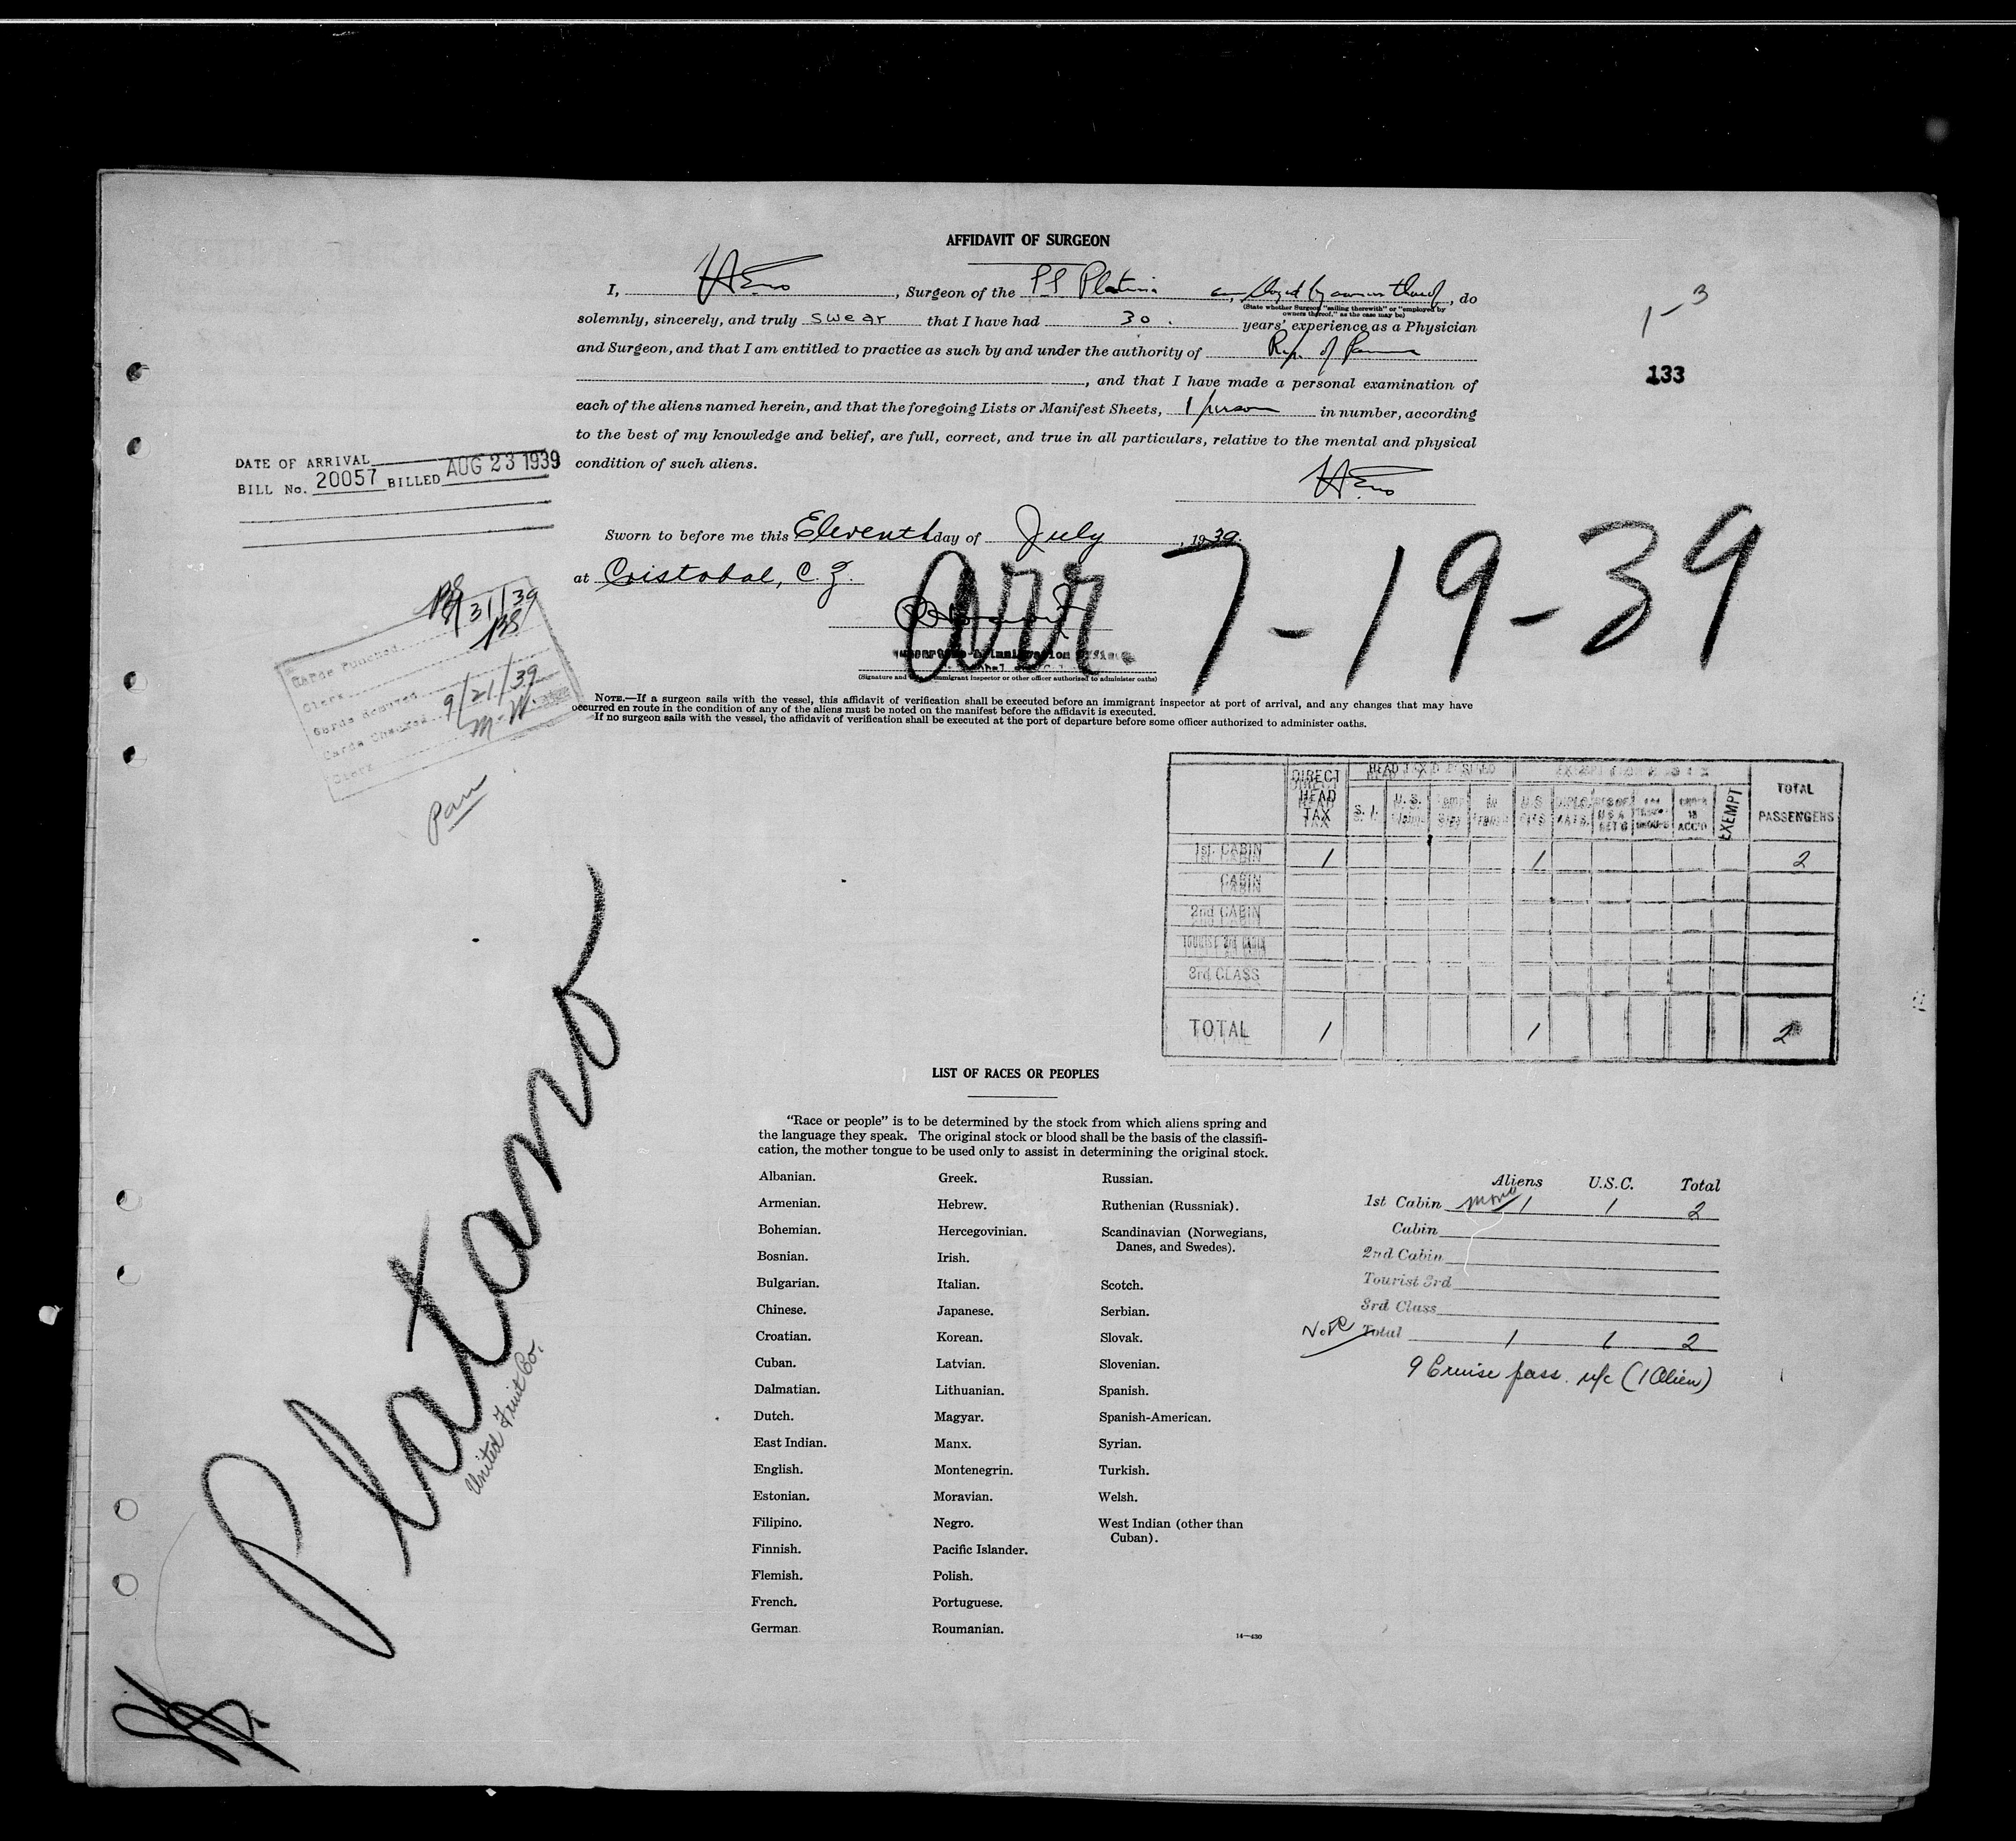 AFFIDAVIT OF SURGEON
I, , Surgeon of the SS , do
(State whether Surgeon "sailing therewith" or "employed by owners thereof," as the case may be)
solemnly, sincerely, and truly swear that I have had 30. years' experience as a Physician
and Surgeon, and that I am entitled to practice as such by and under the authority of Rep. of Panama
, and that I have made a personal examination of
each of the aliens named herein, and that the foregoing Lists or Manifest Sheets, 1 person in number, according
to the best of my knowledge and belief, are full, correct, and true in all particulars, relative to the mental and physical
condition of such aliens.
1-3
133
DATE OF ARRIVAL
BILL No. 20057 BILLED AUG 23 1939
Sworn to before me this Eleventh day of July, 1939.
at Cristobal, C.Z.
arr. 7-19-39
(Signature and immigrant inspector or other officer authorized to administer oaths)
NOTE.—If a surgeon sails with the vessel, this affidavit of verification shall be executed before an immigrant inspector at port of arrival, and any changes that may have
occurred en route in the condition of any of the aliens must be noted on the manifest before the affidavit is executed.
If no surgeon sails with the vessel, the affidavit of verification shall be executed at the port of departure before some officer authorized to administer oaths.
Cards Punched 31/39
Clerk
Cards
Cards Checked 9/21/39
Clerk M.W.
Pan
DIRECT HEAD TAX
U.S. CITS
EXEMPT
TOTAL PASSENGERS
1st. CABIN 1 1 2
CABIN
2nd CABIN
TOURIST 3rd CABIN
3rd CLASS
TOTAL 1 1 2
Platano
United Fruit Co.
LIST OF RACES OR PEOPLES
"Race or people" is to be determined by the stock from which aliens spring and
the language they speak. The original stock or blood shall be the basis of the classifi-
cation, the mother tongue to be used only to assist in determining the original stock.
Albanian.
Armenian.
Bohemian.
Bosnian.
Bulgarian.
Chinese.
Croatian.
Cuban.
Dalmatian.
Dutch.
East Indian.
English.
Estonian.
Filipino.
Finnish.
Flemish.
French.
German.
Greek.
Hebrew.
Hercegovinian.
Irish.
Italian.
Japanese.
Korean.
Latvian.
Lithuanian.
Magyar.
Manx.
Montenegrin.
Moravian.
Negro.
Pacific Islander.
Polish.
Portuguese.
Roumanian.
Russian.
Ruthenian (Russniak).
Scandinavian (Norwegians,
Danes, and Swedes).
Scotch.
Serbian.
Slovak.
Slovenian.
Spanish.
Spanish-American.
Syrian.
Turkish.
Welsh.
West Indian (other than
Cuban).
14—430
Aliens U.S.C. Total
1st Cabin 1 1 2
Cabin
2nd Cabin
Tourist 3rd
3rd Class
Note Total 1 1 2
9 Cruise pass. n/c (1 Alien)